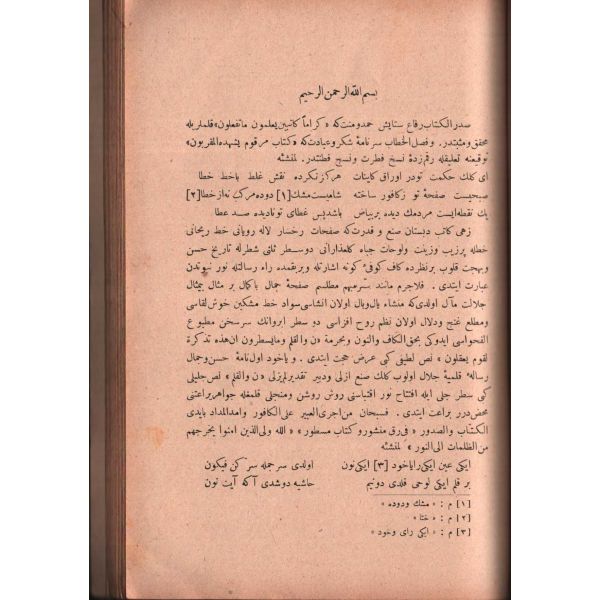 بسم الله الرحمن الرحيم
صدر الكتاب رقاع ستايش حمد ومنت كه «كراماً كاتبين يعلمون ماتفعلون» قلملريله
محقق ومثبتدر. وفصل الخطاب سرنامهٔ شكر وعبادت كه «كتاب مرقوم يشهده المقربون»
توقيعنه تعليقله رقم زدهٔ نسخ فطرت ونسج فطنتدر. لمنشئه
ای كلك حكمت تو در اوراق كاينات هركز نكرده نقش غلط باخط خطا
صبحيست صفحهٔ تو زكافور ساخته شاميست مشك [١] دوده مركب نه از خطا [٢]
يك نقطه ايست مردمك ديده بر بياض باشد پس غطای تو ناديده صد عطا
زهی كاتب دبستان صنع وقدرت كه صفحات رخسار لاله رويانی خط ريحانی
خطله پر زيب وزينت ولوحات جباه كلعذارانی دوسطر ثانی شطرله تاريخ حسن
وبهجت قلوب برنظرده كاف كوفی كونه اشارتله وبرغمده راء رسالتله نور سوتدن
عبارت ايتدی. فلاجرم مانند سنرمهم مطلسم صفحهٔ جمال باكمال بر مثال بيمثال
جلالت مآل اولدی كه منشاء بال وبال اولان انشاسی سواد خط مشكين خوش لقاسی
ومطلع غنج ودلال اولان نظم روح افزاسی دو سطر ابروانك سرسخن مطبوع
الفحواسی ايدوكی بحق الكاف والنون وبحرمة «ن والقلم ومايسطرون ان هذه تذكرة
لقوم يعقلون» نص لطيفی كی عرض حجت ايتدی. و ياخود اول نامهٔ حسن وجمال
رسالهٔ قلميهٔ جلال اولوب كلك صنع ازلی ودبير تقدير لم يزلی «ن والقلم» نص جليلی
كی سطر جلی ايله افتتاح نور اقتباسنی روش روشن ومنجلی قلمغله جواهر براعتنی
محض درر براعت ايتدی. فسبحان من اجری العبير علی الكافور وامد المداد بايدی
الكتاب والصدور «فی رق منشور وكتاب مسطور» «الله ولی الذين امنوا يخرجهم
من الظلمات الی النور» لمنشئه
ايكی عين ايكی را ياخود [٣] ايكی نون اولدی سر جمله سر كن فيكون
بر قلم ايكی لوحی قلدی دونيم حاشيه دوشدی آكه آيت نون
[١] م : «مشك ودوده»
[٢] م : «ختا»
[٣] م : «ايكی رای وخود»